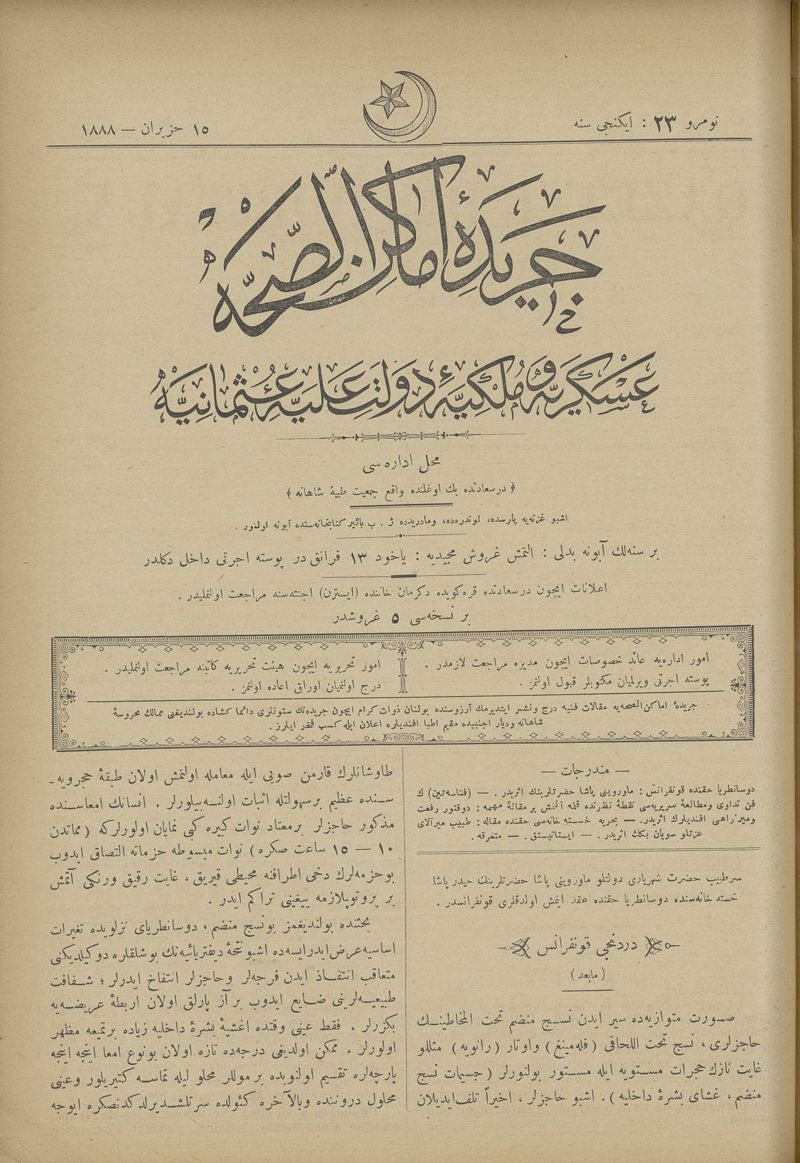 نومرو ٢٣ : ايكنجی سنه
١٥ حزيران — ١٨٨٨
جريدهٔ اماكن الصحه
عسكريه و ملكيهٔ دولت عليهٔ عثمانيه
محل اداره‌سی
﴿ درسعادتده بك اوغلنده واقع جمعيت طبيهٔ شاهانه ﴾
اشبو غزته‌يه پارسده، لوندره‌ده، ومادريدده ژ . ب بائير كتابخانه‌سنده آبونه اولنور .
بر سنه‌لك آبونه بدلی : التمش غروش مجيديه : ياخود ١٣ فرانق در پوسته اجرتی داخل دكلدر
اعلانات ايچون درسعادتده قره‌كويده دكرمان خاننده (ايسترن) اجنته‌سنه مراجعت اولنمليدر .
بر نسخه‌سی ٥ غروشدر
امور اداره‌يه عائد خصوصات ايچون مديره مراجعت لازمدر .
پوسته اجرتی ويرلميان مكتوبلر قبول اولنمز .
امور تحريريه ايچون هيئت تحريريه كاتبنه مراجعت اولنمليدر .
درج اولنميان اوراق اعاده اولنمز .
جريدهٔ اماكن‌الصحه‌يه مقالات فنيه درج ونشر ايتديرمك آرزوسنده بولنان ذوات كرام ايچون جريده‌نك ستونلری دائما كشاده بولنديغی ممالك محروسهٔ
شاهانه وديار اجنبيده مقيم اطبا افنديلره اعلان ايله كسب فخر ايلرز .
— مندرجات —
دوسانطريا حقنده قونفرانس : ماوروينی پاشا حضرتلرينك اثريدر . — (فناسه‌تين) ك
فن تداوی ومطالعهٔ سريريه‌سی نقطهٔ نظرنده قلمه آلنمش بر مقالهٔ مهمه : دوقتور رفعت
وميرزاهی افنديلرك اثريدر . — بحريه خسته خانه‌سی حقنده مقاله : طبيب ميرآلای
عزتلو سويان بكك اثريدر . — ايستاتيستق . — متفرقه .
سرطبيب حضرت شهرياری دولتلو ماوروينی پاشا حضرتلرينك حيدر پاشا
خسته خانه‌سنده دوسانطريا حقنده عقد ايتمش اولدقلری قونفرانسدر .
دردنجی قونفرانس
( مابعد )
صورت متوازيه‌ده سير ايدن نسج منضم تحت المخاطينك
حاجزلری ، نسج تحت اللحافی ( فله‌مينغ ) واوتار ( رانويه ) مثللو
غايت نازك حجرات مستويه ايله مستور بولنورلر ( جسيمات نسج
منضم ، غشای بشرهٔ داخليه ) . اشبو حاجزلر ، اخيراً تلف‌ايديلان
طاوشانلرك قارمن صويی ايله معامله اولنمش اولان طبقهٔ حجرويه‌-
سنده عظيم برسهولتله اثبات اولنه‌بيلورلر . انسانك امعاسنده
مذكور حاجزلر برمعتاد نوات كبيره كبی نمايان اولورلركه ( مماتدن
١٠ — ١٥ ساعت صكره ) نوات مبسوطه حزماته التصاق ايدوب
بوحزمه‌لرك دخی اطرافنه محيطی قيريق ، غايت رقيق ورنكی آتمش
بر بروتوپلازمه ييغينی تراكم ايدر .
بحثنده بولنديغمز بونسج منضم ، دوسانطريای نزلويده تغيرات
اساسيه‌عرض‌ايدرايسه‌ده اشبونتحهٔ ديفتريائيه‌نك بوشلقلره دوكيلديكنی
متعاقب انتفاذ ايدن فرجه‌لر وحاجزلر انتفاخ ايدرلر ؛ شفافت
طبيعيه‌لرينی ضايع ايدوب برآز پارلق اولان اربطهٔ عريضه‌يه
بكزرلر . فقط عينی وقتده اغشيهٔ بشرهٔ داخليه زياده برتبعه مظهر
اولورلر . ممكن اولديغی درجه‌ده تازه اولان بونوع امعا اينجه اينجه
پارچه‌لره تقسيم اولنوبده بر موللر محلو ليله تماسه كتيريلور وعينی
محلول دروننده وبالآخره كئولده سرتلشديرلدكدنصكره ايوجه